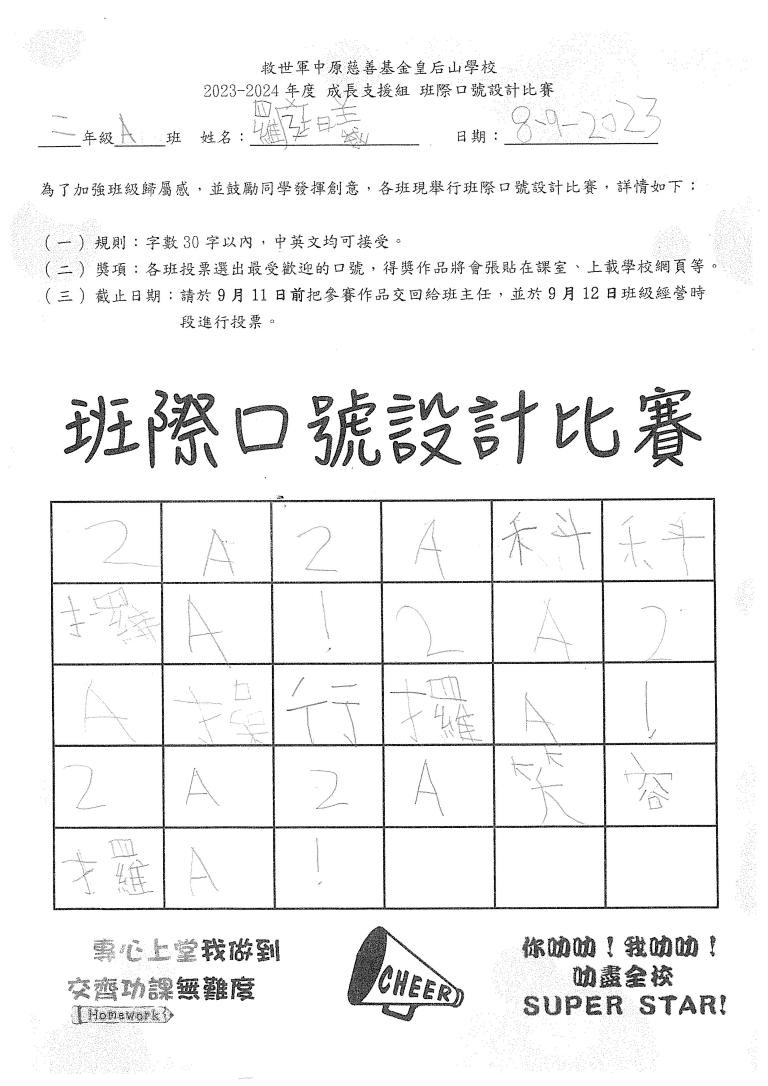 救世軍中原慈善基金皇后山學校
2023-2024 年度 成長支援組 班際口號設計比賽
二 年級 A 班 姓名： 羅 日期： 8-9-2023
為了加強班級歸屬感，並鼓勵同學發揮創意，各班現舉行班際口號設計比賽，詳情如下：
（一）規則：字數 30 字以內，中英文均可接受。
（二）獎項：各班投票選出最受歡迎的口號，得獎作品將會張貼在課室、上載學校網頁等。
（三）截止日期：請於 9 月 11 日前把參賽作品交回給班主任，並於 9 月 12 日班級經營時
段進行投票。
班際口號設計比賽
2 A 2 A 科 科
攞 A ! 2 A 2
A 操 行 攞 A !
2 A 2 A 笑 容
攞 A !
專心上堂我做到
交齊功課無難度
Homework
CHEER
你叻叻！我叻叻！
叻盡全校
SUPER STAR!